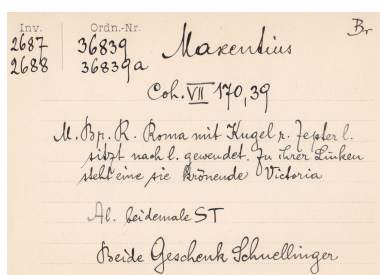 Br
Inv. Ordn.-Nr.
2687 36839 Maxentius
2688 36839a
Coh. VII 170,39
M. Br. R. Roma mit Kugel r. Zepter l.
sitzt nach l. gewendet. Zu ihrer Linken
steht eine sie krönende Victoria
Ab. beidemale ST
Beide Geschenk Schnellinger